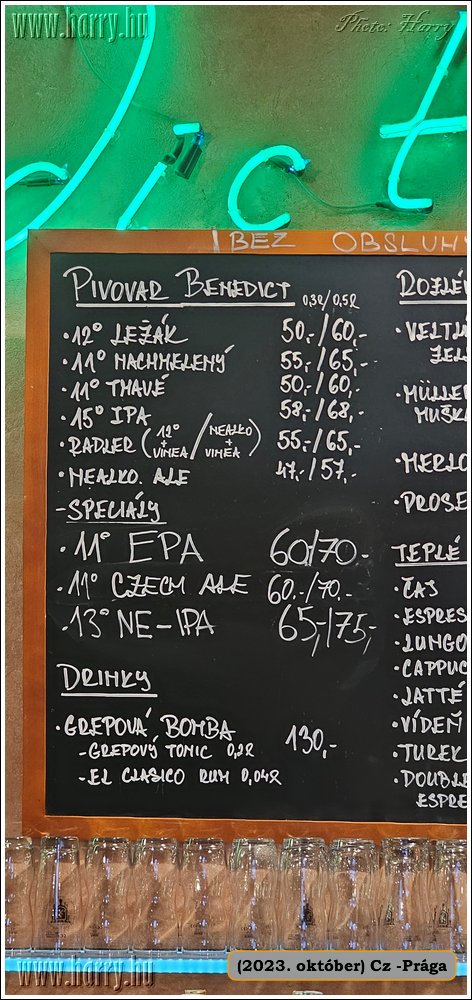 www.harry.hu
Photo: Harry
dict
I BEZ OBSLUHY
PIVOVAR BENEDICT 0,3l/0,5l
• 12° LEŽÁK 50,-/60,-
• 11° NACHMELENÝ 55,-/65,-
• 11° TMAVÉ 50,-/60,-
• 15° IPA 58,-/68,-
• RADLER (12° + VINEA / NEALKO + VINEA) 55,-/65,-
• NEALKO. ALE 47,-/57,-
- SPECIÁLY
• 11° EPA 60/70-
• 11° CZECH ALE 60.-/70,-
• 13° NE-IPA 65,-/75,-
DRINKY
• GREPOVÁ BOMBA 130,-
- GREPOVÝ TONIC 0,2l
- EL CLASICO RUM 0,04l
ROZLÉV
• VELTL
ZEL
• MÜLLER
MUŠK
• MERLO
• PROSE
TEPLÉ
• ČAJ
• ESPRES
• LUNGO
• CAPPUC
• LATTÉ
• VÍDEŇ
• TUREK
• DOUBLE
ESPRE
www.harry.hu
(2023. október) Cz -Prága